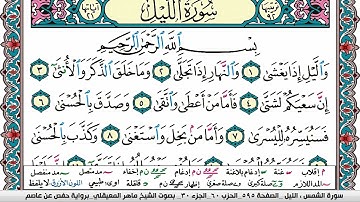 سُورَةُ اللَّيْلِ
بِسْمِ اللَّهِ الرَّحْمَٰنِ الرَّحِيمِ
وَاللَّيْلِ إِذَا يَغْشَىٰ ١ وَالنَّهَارِ إِذَا تَجَلَّىٰ ٢ وَمَا خَلَقَ الذَّكَرَ وَالْأُنثَىٰ ٣
إِنَّ سَعْيَكُمْ لَشَتَّىٰ ٤ فَأَمَّا مَنْ أَعْطَىٰ وَاتَّقَىٰ ٥ وَصَدَّقَ بِالْحُسْنَىٰ ٦
فَسَنُيَسِّرُهُ لِلْيُسْرَىٰ ٧ وَأَمَّا مَن بَخِلَ وَاسْتَغْنَىٰ ٨ وَكَذَّبَ بِالْحُسْنَىٰ
سورة الشمس، الليل . الصفحة ٥٩٥ الحزب ٦٠ الجزء ٣٠. بصوت الشيخ ماهر المعيقلي برواية حفص عن عاصم